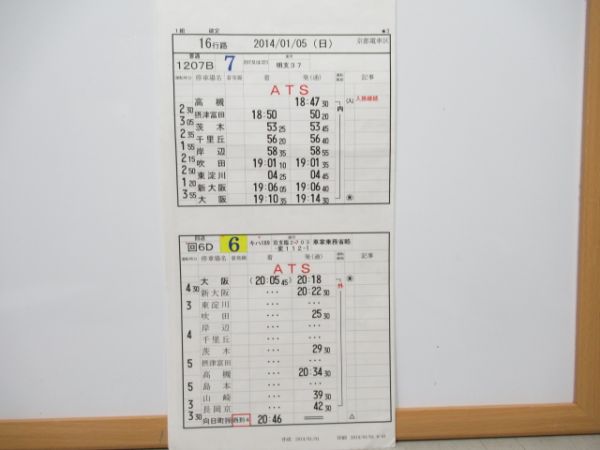 1組 確定
16行路 2014/01/05 (日) 京都電車区
普通
1207B 7 明支37
停車場名 着 発(通) 記事
ATS
高槻 18:47 30 (入) 人務継続
2 30 内
摂津富田 18:50 50 20
3 05
茨木 53 25 53 45
2 35
千里丘 56 20 56 40
1 55
岸辺 58 35 58 55
2 15
吹田 19:01 10 19:01 35
2 50
東淀川 04 25 04 45
1 20
新大阪 19:06 05 19:06 40
3 55
大阪 19:10 35 19:14 30
回送
回6D 6 キハ189 車掌乗務省略
・変112-1
停車場名 着 発(通) 記事
ATS
大阪 (20:05 45) 20:18
4 30 外
新大阪 ... 20:22 30
3
東淀川 ... ...
吹田 ... 25 30
4
岸辺 ... ...
千里丘 ... ...
茨木 ... 29 30
5
摂津富田 ... ...
高槻 ... 20:34 30
5
島本 ... ...
山崎 ... 39 30
3
長岡京 ... 42 30
3 30
向日町操 20:46 △
作成 2014/01/01